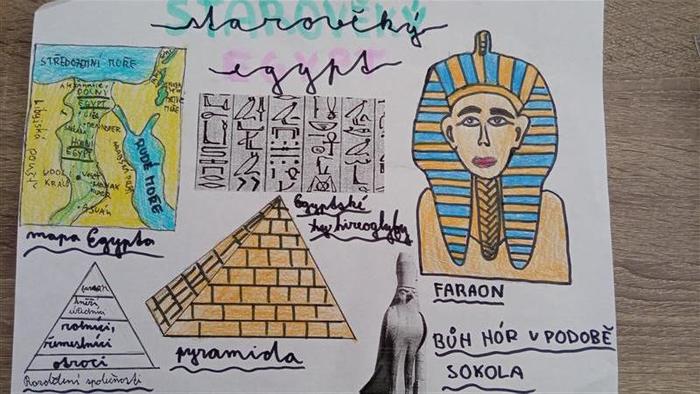 starověký
egypt
STŘEDOZEMNÍ MOŘE
DOLNÍ
EGYPT
HORNÍ
EGYPT
RUDÉ MOŘE
Libyjská poušť
ÚDOLÍ
KRÁLŮ
mapa Egypta
Egyptské
hyhireoglyfy
FARAON
faraon
kněží
úředníci
rolníci,
řemeslníci
otroci
Rozdělení společnosti
pyramida
BŮH HÓR V PODOBĚ
SOKOLA